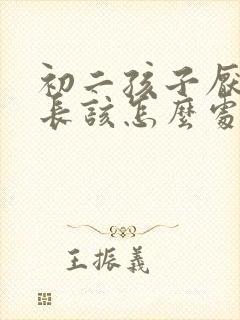 初二孩子厭
長該怎麼處
王振義